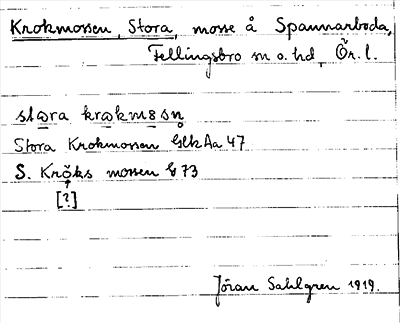 Krokmossen, Stora, mosse å Spannarboda,
Fellingsbro sn o. hd, Ör. l.
Stora Krokmossen GlkAa 47
S. Krŏks mossen G 73
[?]
Jöran Sahlgren 1919.